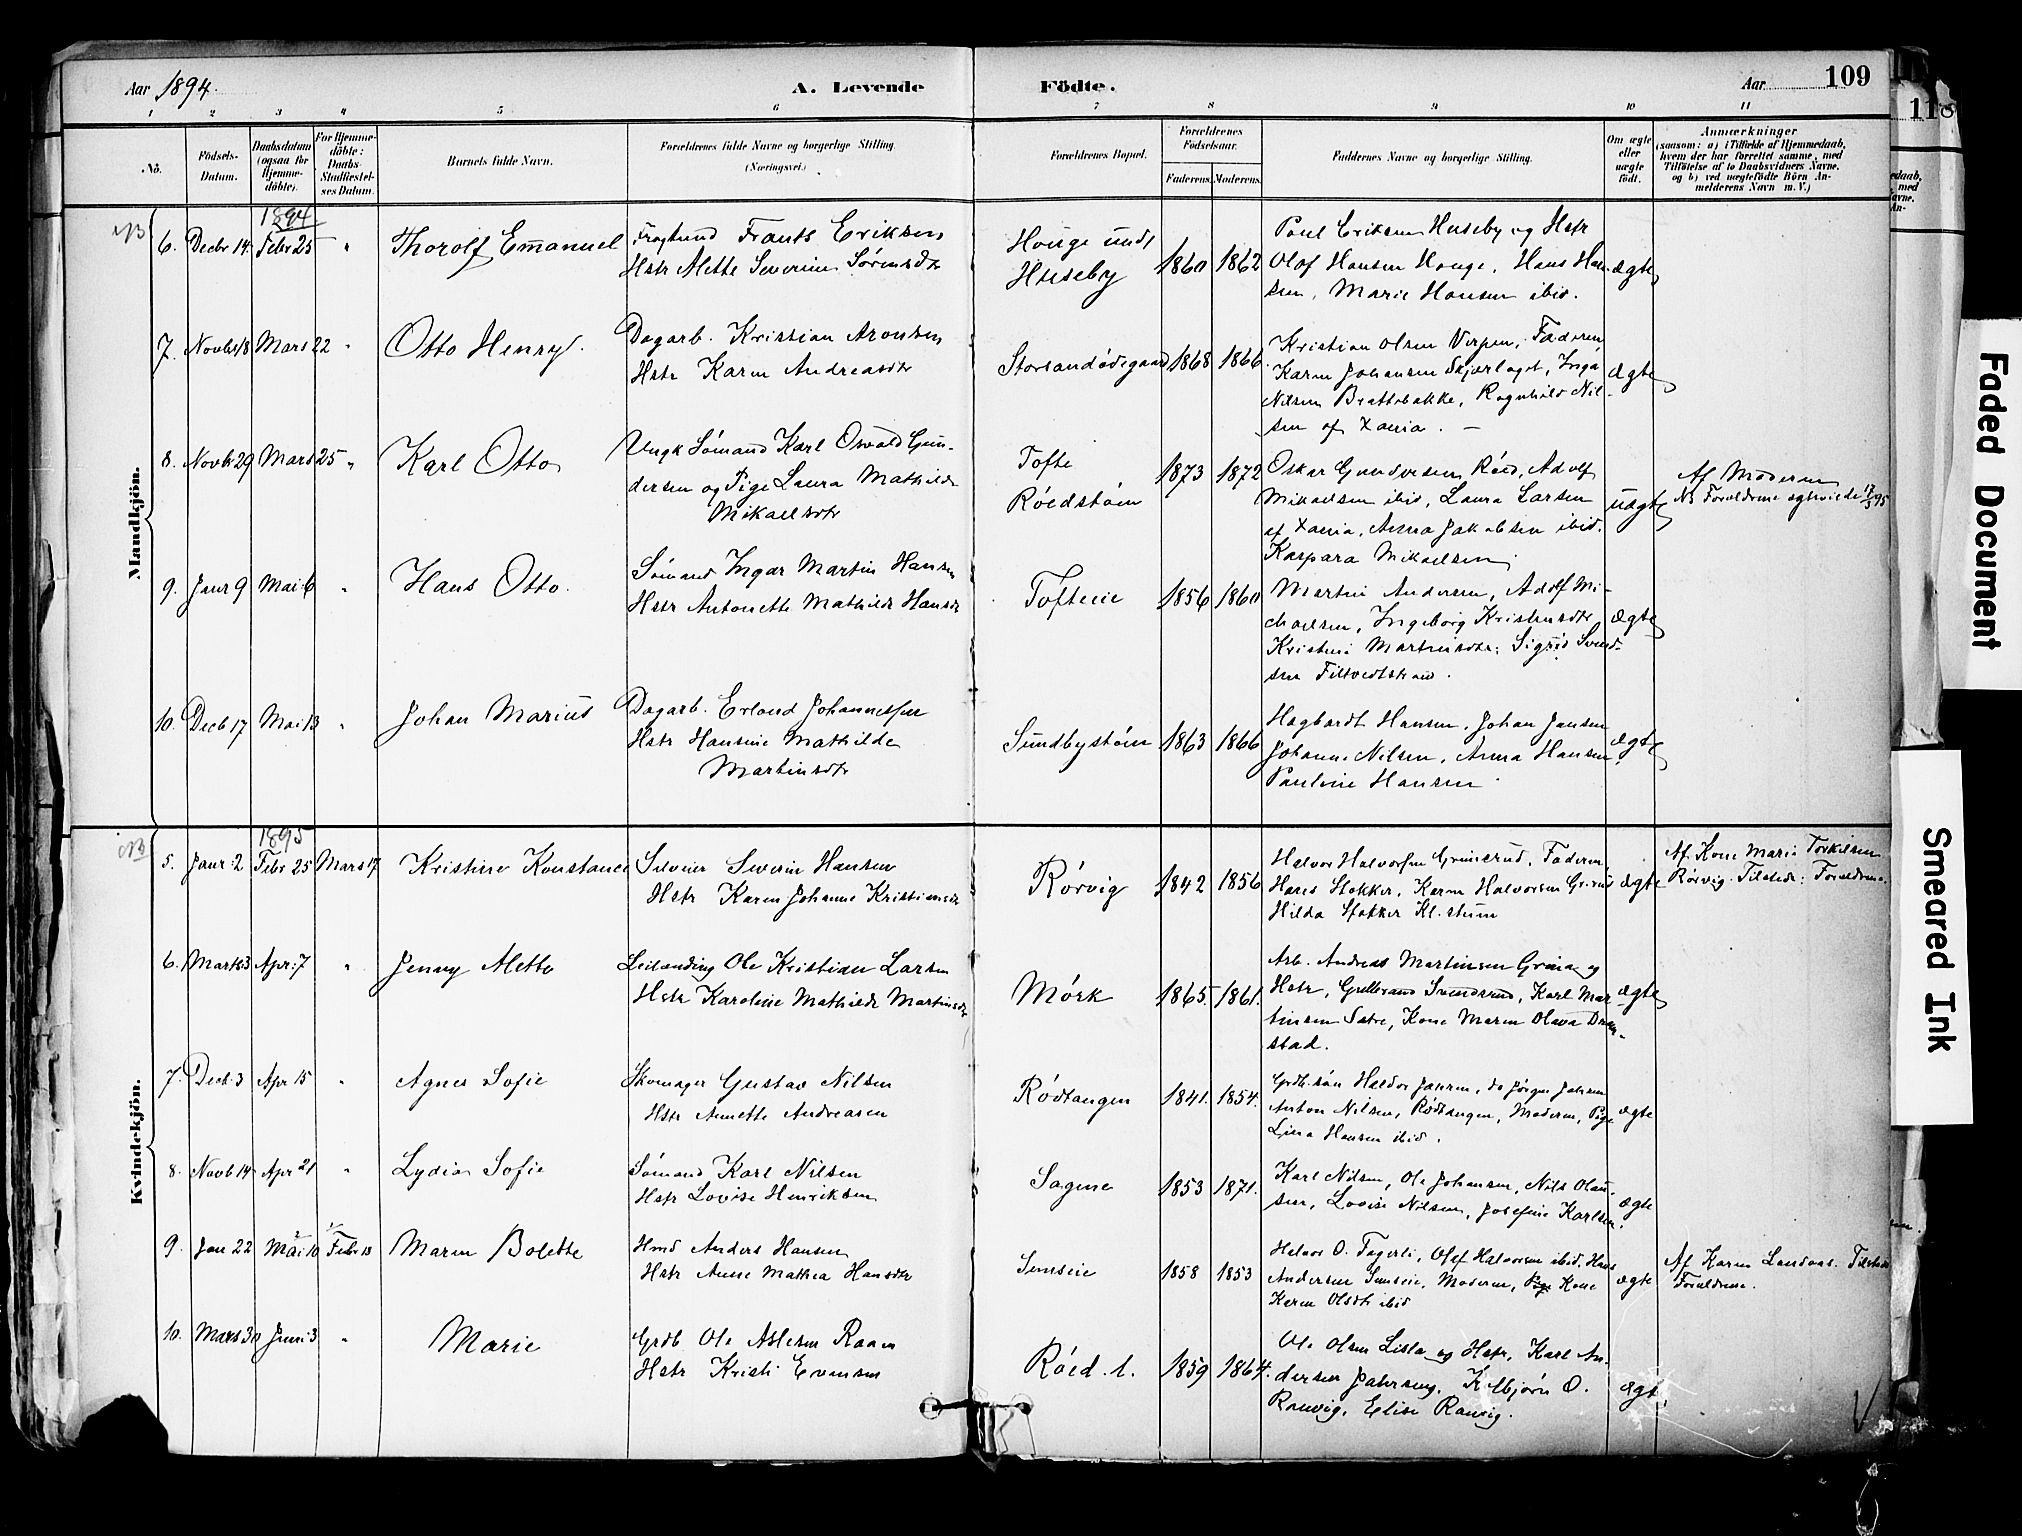 Aar 1894. A. Levende Födte. Aar 109
118
1 2 3 4 5 6 7 8 9 10 11
No. Födsels-Datum. Daabsdatum (ogsaa for Hjemmedöbte). For Hjemmedöbte: Daabs-Stadfæstelses Datum. Barnets fulde Navn. Forældrenes fulde Navne og borgerlige Stilling. (Næringsvei.) Forældrenes Bopæl. Forældrenes Födselsaar. Faderens. Moderens. Faddernes Navne og borgerlige Stilling. Om ægte eller uægte födt. Anmærkninger (saasom: a) i Tilfælde af Hjemmedaab, hvem der har forrettet samme, med Tilföielse af to Daabsvidners Navne, og b) ved uægtefödte Börn Anmelderens Navn m. V.)
Mandkjön.
NB 1894
6. Decbr 14. Febr 25 " Thorolf Emanuel
Frants Eriksen
Hstr Mette Severine Sørensdtr
Houge und,
Huseby
1860 1862
Poul Eriksen Huseby og Hstr
Olaf Hansen Houge, Hans Han-
sen, Marie Hansen ibid.
ægte
7. Novbr 18 Mars 22 " Otto Henry.
Dagarb. Kristian Aronsen
Hstr Karen Andreasdtr
Storsandødegaard 1868 1866.
Kristian Olsen Verpen, Faderen,
Karen Johansen Skjærlaget, Inga
Nilsen Brattebakke, Ragnhild Nil-
sen af Xania. –
ægte
8. Novb 29 Mars 25 " Karl Otto
Ungk Sømand Karl Osvald Gun-
dersen og Pige Laura Mathilde
Mikaelsdtr
Tofte
Røedstøen
1873 1872
Oskar Gundersen Røed, Adolf
Mikaelsen ibid, Laura Larsen
af Xania, Anna Jakobsen ibid.
Kaspara Mikaelsen.
uægte
Af Moderen
NB Forældrene egteviede 17/3 95
9. Janr 9 Mai 6 " Hans Otto.
Sømand Ingar Martin Hansen
Hstr Antonette Mathilde Hansdtr
Tofteeie 1856 1860
Martin Andersen, Adolf Mi-
chaelsen, Ingeborg Kristensdtr
Kristine Martinsdtr: Sigrid Svend-
sen Filtvedtstrand.
ægte
10. Decb 17 Mai 13 " Johan Marius
Dagarb. Erland Johannessen
Hstr Hansine Mathilde
Martinsdtr
Sundbystøen 1863 1866
Hagbardt Hansen, Johan Jansen
Johanne Nilsen, Anna Hansen,
Pauline Hansen
ægte
Kvindekjön.
NB 1895
5. Janr: 2 Febr 25 Mars 17 Kristine Konstance
Selveier Severin Hansen
Hstr Karen Johanne Kristiansdtr
Rørvig 1842 1856
Halvor Halvorsen Grimsrud, Faderen
Hans Stokker, Karen Halvorsen
Hilda Stokker
ægte
Af Kone Maria Torkilsen
Rørvig. Tilstede: Forældrene.
6. Marts 3 Apr: 7 " Jenny Mette
Leilænding Ole Kristian Larsen
Hstr Karoline Mathilde Martinsdtr
Mörk 1865. 1861.
Arb. Andreas Martinsen Grina og
Hstr, Gulbrand Svendsrud, Karl Mar
tinsen Sætre, Kone Maren Olava
stad.
ægte
7. Decb. 3 Apr 15 " Agnes Sofie
Skomager Gustav Nilsen
Hstr Annette Andreasen
Rødtangen 1841. 1854.
Grdb.søn Haldor Jansen, do Jørgen Jahnsen
Anton Nilsen, Rødtangen, Moderen, Pige
Lina Hansen ibid.
ægte
8. Novb 14 Apr 21 " Lydia Sofie
Sømand Karl Nilsen
Hstr Lovise Henriksen
Sagene 1853 1871.
Karl Nilsen, Ole Johansen, Nils Olau-
sen, Lovise Nilsen, Josefine Karlsen.
ægte
9. Jan 22 Mai 10 Febr 13 Maren Bolette
Hmd Anders Hansen
Hstr Anne Mathea Hansdtr
Semseie 1858 1853
Halvor O. Fagerli, Olaf Halvorsen ibid, Hans
Andersen Semseie, Moderen, Kone
Karen Olsdtr ibid
ægte
Af Karen Landaas. Tilstede
Forældrene.
10. Mars 30 Juni 3 " Marie
Grdb Ole Aslesen Raaen
Hstr Kristi Evensen
Røed. l. 1859 1864.
Ole Olsen Lisla og Hstr, Karl An-
dersen O.
Ramvig, Elise Ramvig.
ægte
Faded Document
Smeared Ink